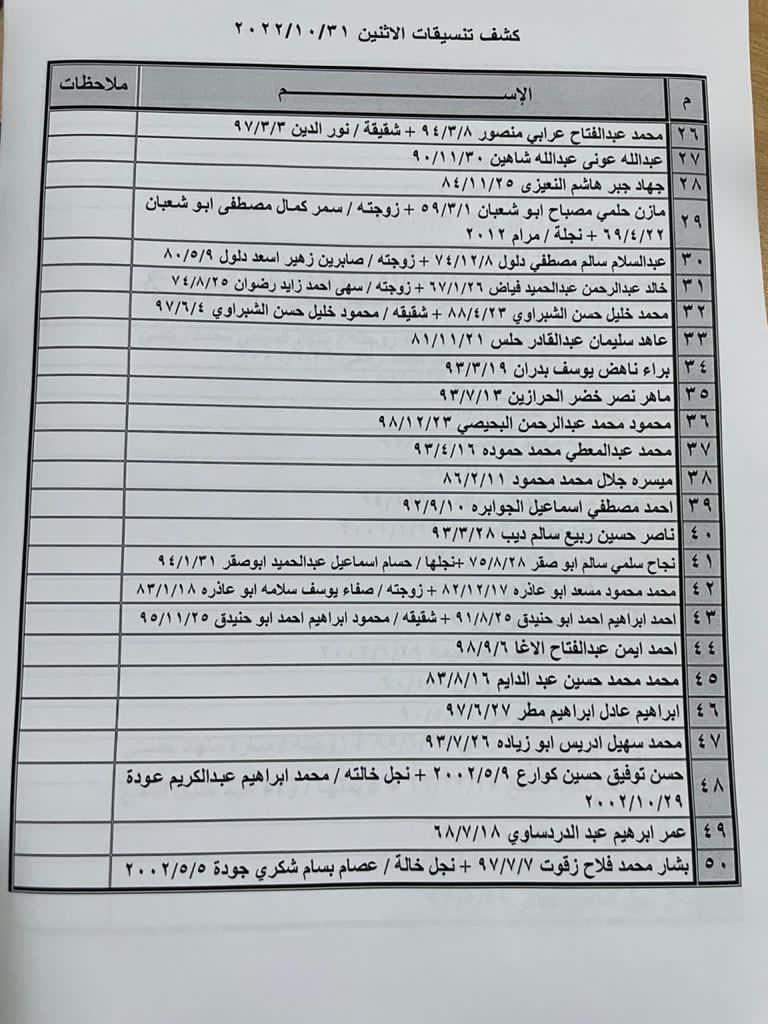 كشف تنسيقات الاثنين ٢٠٢٢/١٠/٣١
م الإســـــــــم ملاحظات
٢٦ محمد عبدالفتاح عرابي منصور ٩٤/٣/٨ + شقيقة / نور الدين ٩٧/٣/٣
٢٧ عبدالله عونى عبدالله شاهين ٩٠/١١/٣٠
٢٨ جهاد جبر هاشم النعيزى ٨٤/١١/٢٥
٢٩ مازن حلمي مصباح ابو شعبان ٥٩/٣/١ + زوجته / سمر كمال مصطفى ابو شعبان
٦٩/٤/٢٢ + نجلة / مرام ٢٠١٢
٣٠ عبدالسلام سالم مصطفي دلول ٧٤/١٢/٨ + زوجته / صابرين زهير اسعد دلول ٨٠/٥/٩
٣١ خالد عبدالرحمن عبدالحميد فياض ٦٧/١/٢٦ + زوجته / سهى احمد زايد رضوان ٧٤/٨/٢٥
٣٢ محمد خليل حسن الشبراوي ٨٨/٤/٢٣ + شقيقه / محمود خليل حسن الشبراوي ٩٧/٦/٤
٣٣ عاهد سليمان عبدالقادر حلس ٨١/١١/٢١
٣٤ براء ناهض يوسف بدران ٩٣/٣/١٩
٣٥ ماهر نصر خضر الحرازين ٩٣/٧/١٣
٣٦ محمود محمد عبدالرحمن البحيصي ٩٨/١٢/٢٣
٣٧ محمد عبدالمعطي محمد حموده ٩٣/٤/١٦
٣٨ ميسره جلال محمد محمود ٨٦/٢/١١
٣٩ احمد مصطفي اسماعيل الجوابره ٩٢/٩/١٠
٤٠ ناصر حسين ربيع سالم ديب ٩٣/٣/٢٨
٤١ نجاح سلمي سالم ابو صقر ٧٥/٨/٢٨ +نجلها / حسام اسماعيل عبدالحميد ابوصقر ٩٤/١/٣١
٤٢ محمد محمود مسعد ابو عاذره ٨٢/١٢/١٧ + زوجته / صفاء يوسف سلامه ابو عاذره ٨٣/١/١٨
٤٣ احمد ابراهيم احمد ابو حنيدق ٩١/٨/٢٥ + شقيقه / محمود ابراهيم احمد ابو حنيدق ٩٥/١١/٢٥
٤٤ احمد ايمن عبدالفتاح الاغا ٩٨/٩/٦
٤٥ محمد محمد حسين عبد الدايم ٨٣/٨/١٦
٤٦ ابراهيم عادل ابراهيم مطر ٩٧/٦/٢٧
٤٧ محمد سهيل ادريس ابو زياده ٩٣/٧/٢٦
٤٨ حسن توفيق حسين كوارع ٢٠٠٢/٥/٩ + نجل خالته / محمد ابراهيم عبدالكريم عودة
٢٠٠٢/١٠/٢٩
٤٩ عمر ابرهيم عبد الدردساوي ٦٨/٧/١٨
٥٠ بشار محمد فلاح زقوت ٩٧/٧/٧ + نجل خالة / عصام بسام شكري جودة ٢٠٠٢/٥/٥